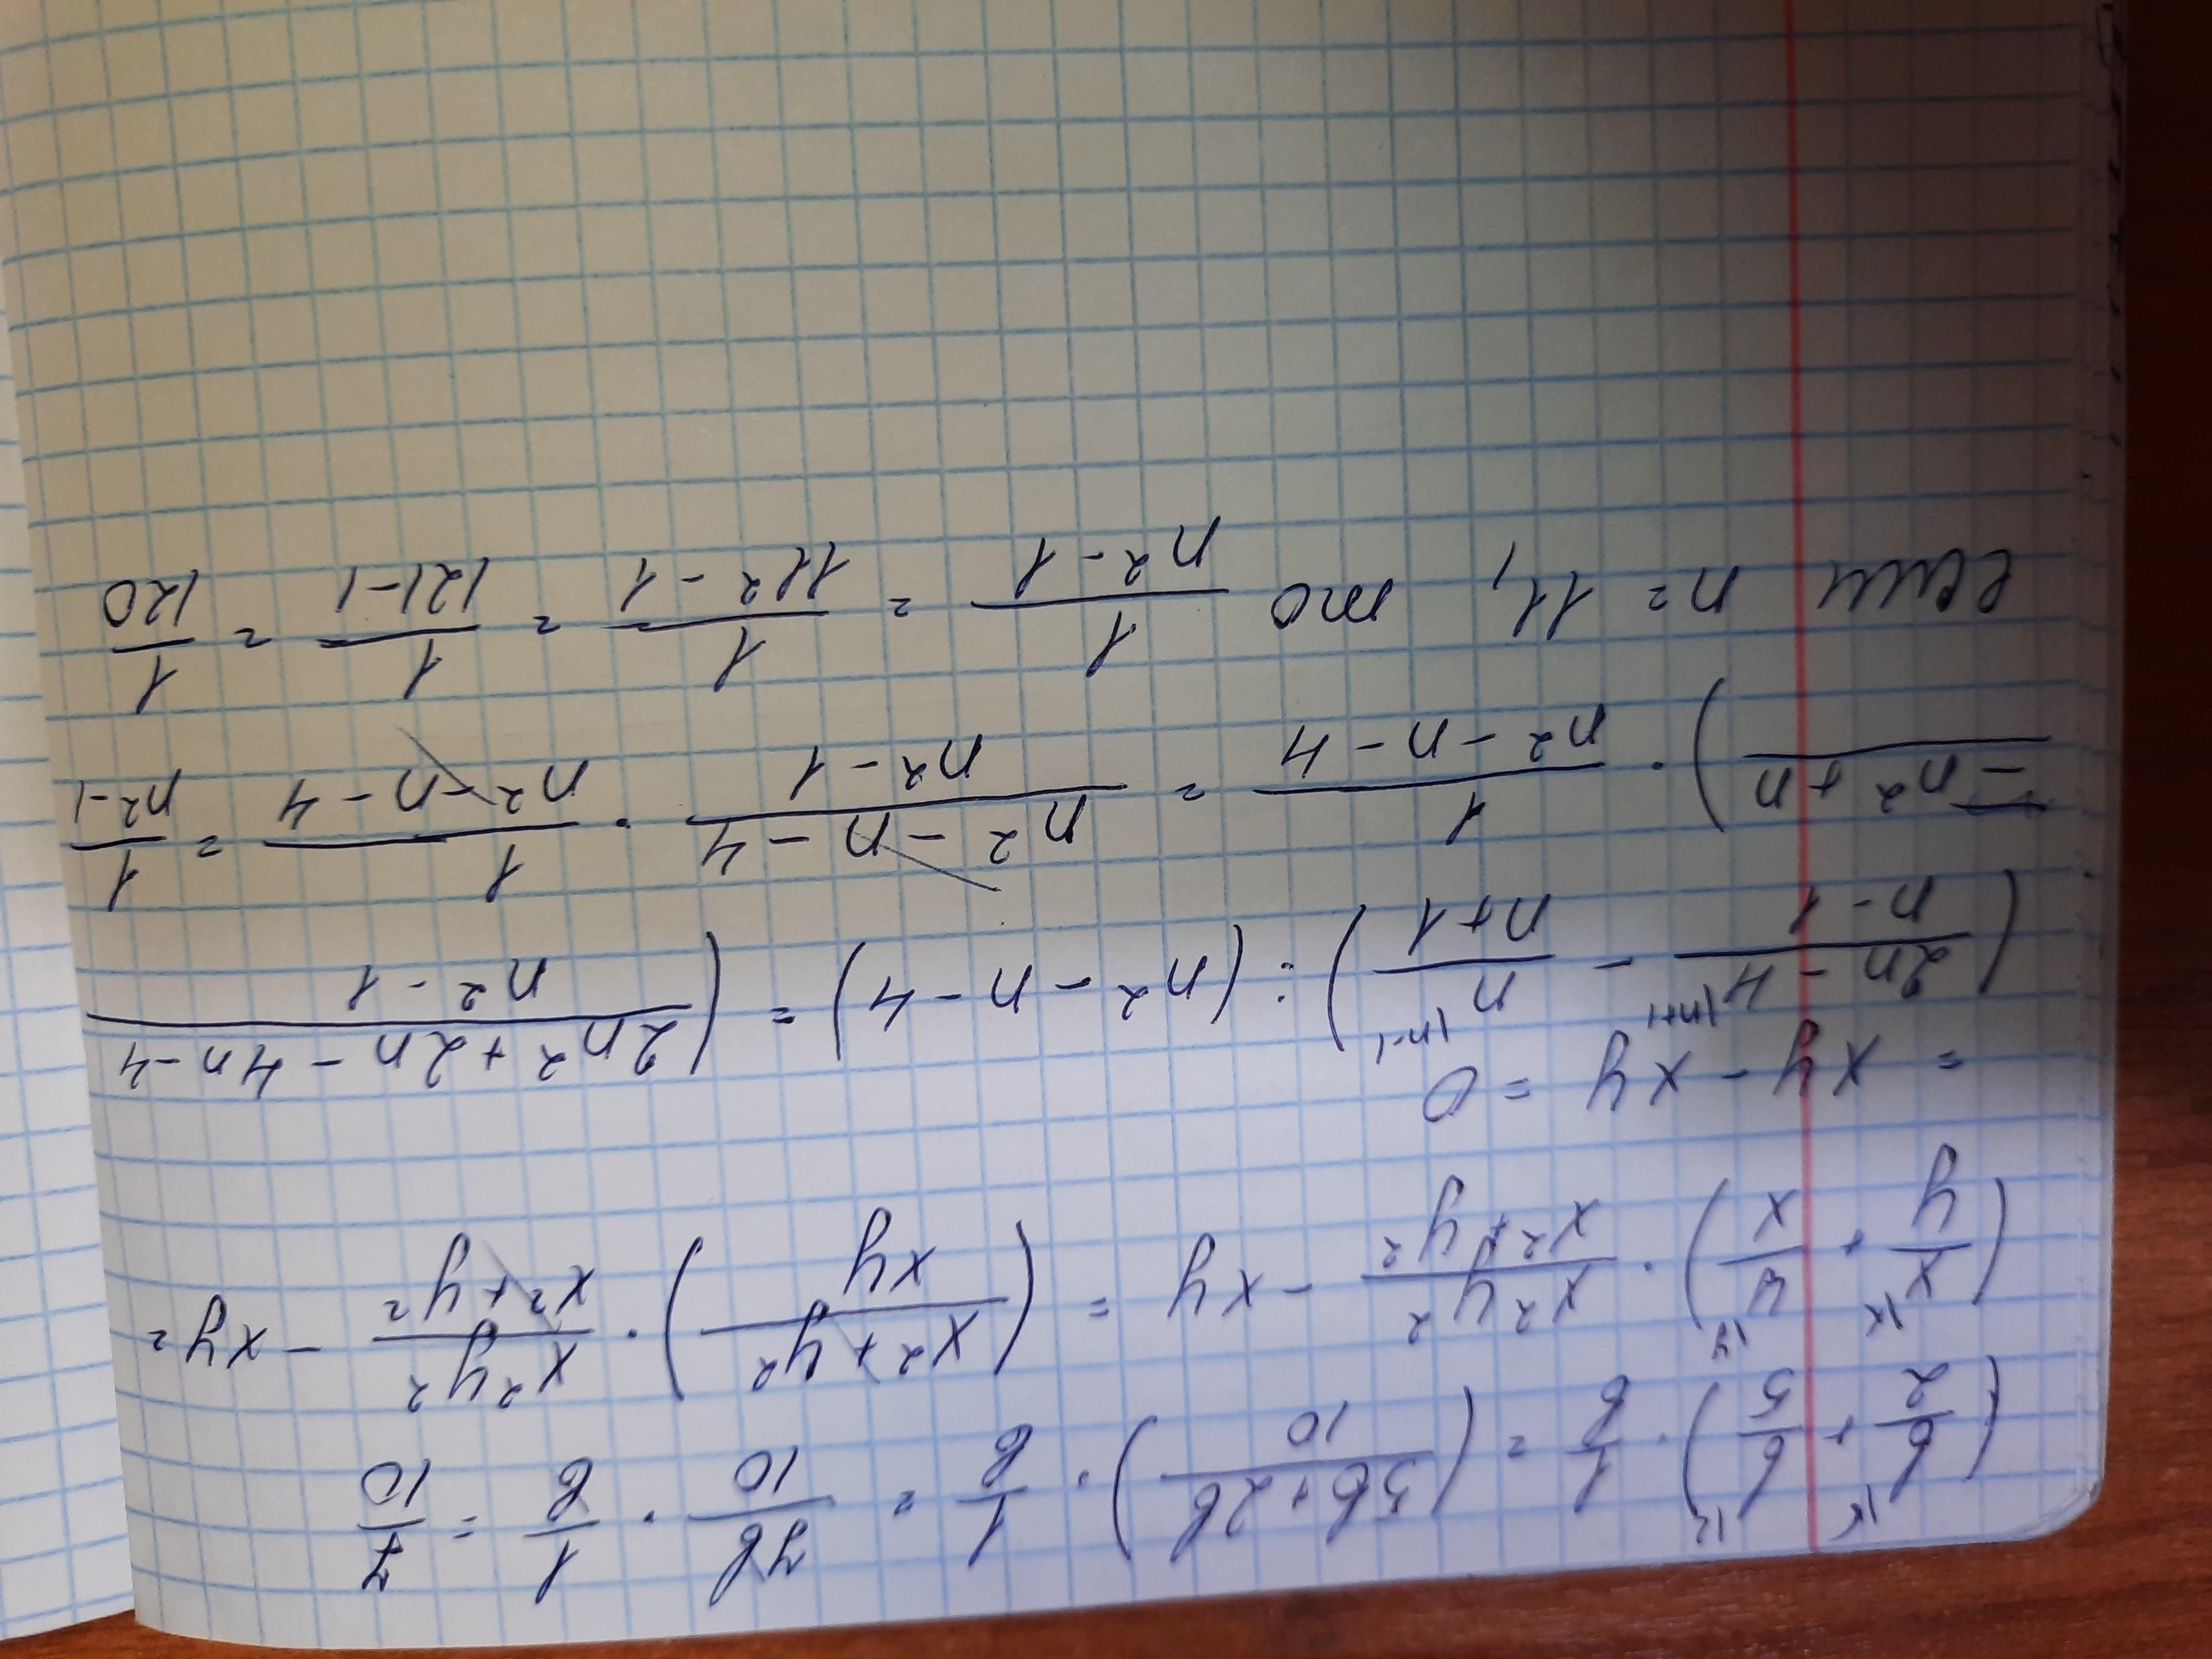 (b/2 + b/5) · 1/b = ((5b+2b)/10) · 1/b = 7b/10 · 1/b = 7/10
(x/y + y/x) · x²y²/(x²+y²) - xy = ((x²+y²)/xy) · x²y²/(x²+y²) - xy =
= xy - xy = 0
((2n-4)/(n-1) |n+1 - n/(n+1) |n-1) : (n² - n - 4) = ((2n²+2n-4n-4)/(n²-1)
(-n²+n)/) · 1/(n²-n-4) = (n²-n-4)/(n²-1) · 1/(n²-n-4) = 1/(n²-1)
если n = 11, то 1/(n²-1) = 1/(11²-1) = 1/(121-1) = 1/120